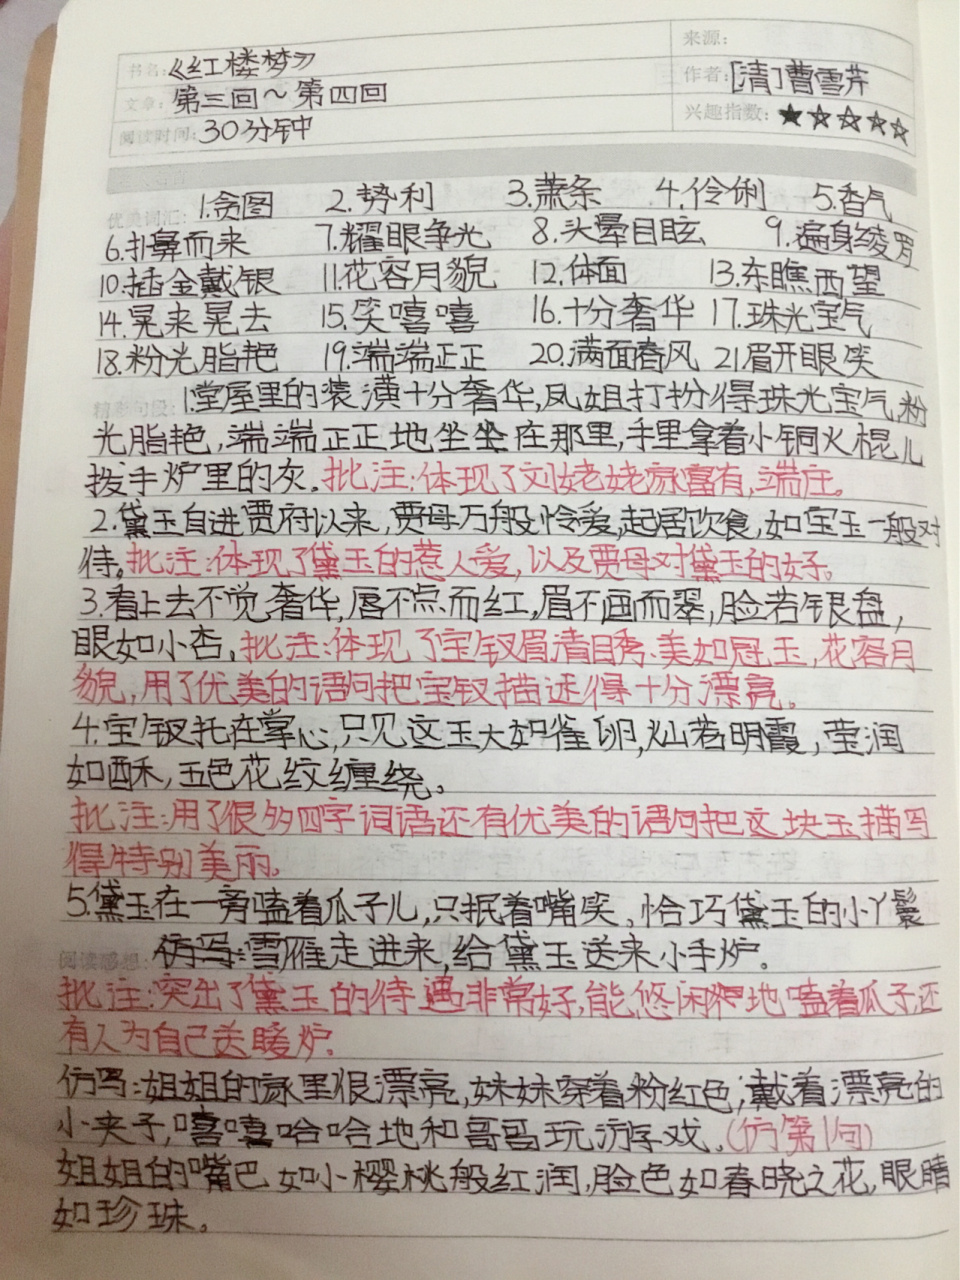 书名：《红楼梦》 来源：
文章：第三回～第四回 作者：[清]曹雪芹
阅读时间：30分钟 兴趣指数：★☆☆☆☆
优美词汇：1.贪图 2.势利 3.萧条 4.伶俐 5.香气
6.扑鼻而来 7.耀眼争光 8.头晕目眩 9.遍身绫罗
10.插金戴银 11.花容月貌 12.体面 13.东瞧西望
14.晃来晃去 15.笑嘻嘻 16.十分奢华 17.珠光宝气
18.粉光脂艳 19.端端正正 20.满面春风 21眉开眼笑
精彩句段：1.堂屋里的装潢十分奢华,凤姐打扮得珠光宝气,粉
光脂艳,端端正正地坐坐在那里,手里拿着小铜火棍儿
拨手炉里的灰。批注:体现了刘姥姥家富有,端庄。
2.黛玉自进贾府以来,贾母万般怜爱,起居饮食,如宝玉一般对
待。批注:体现了黛玉的惹人爱,以及贾母对黛玉的好。
3.看上去不觉奢华,唇不点而红,眉不画而翠,脸若银盘,
眼如小杏,批注:体现了宝钗眉清目秀、美如冠玉,花容月
貌,用了优美的语句把宝钗描述得十分漂亮。
4.宝钗托在掌心,只见这玉大如雀卵,灿若明霞,莹润
如酥,五色花纹缠绕。
批注:用了很多四字词语还有优美的语句把这块玉描写
得特别美丽。
5.黛玉在一旁嗑着瓜子儿,只抿着嘴笑。恰巧黛玉的小丫鬟
阅读感想：仿写:雪雁走进来,给黛玉送来小手炉。
批注:突出了黛玉的待遇非常好,能悠闲地嗑着瓜子,还
有人为自己送暖炉。
仿写:姐姐的家里很漂亮,妹妹穿着粉红色,戴着漂亮的
小夹子,嘻嘻哈哈地和哥哥玩游戏。(仿第1句)
姐姐的嘴巴如小樱桃般红润,脸色如春晓之花,眼睛
如珍珠。